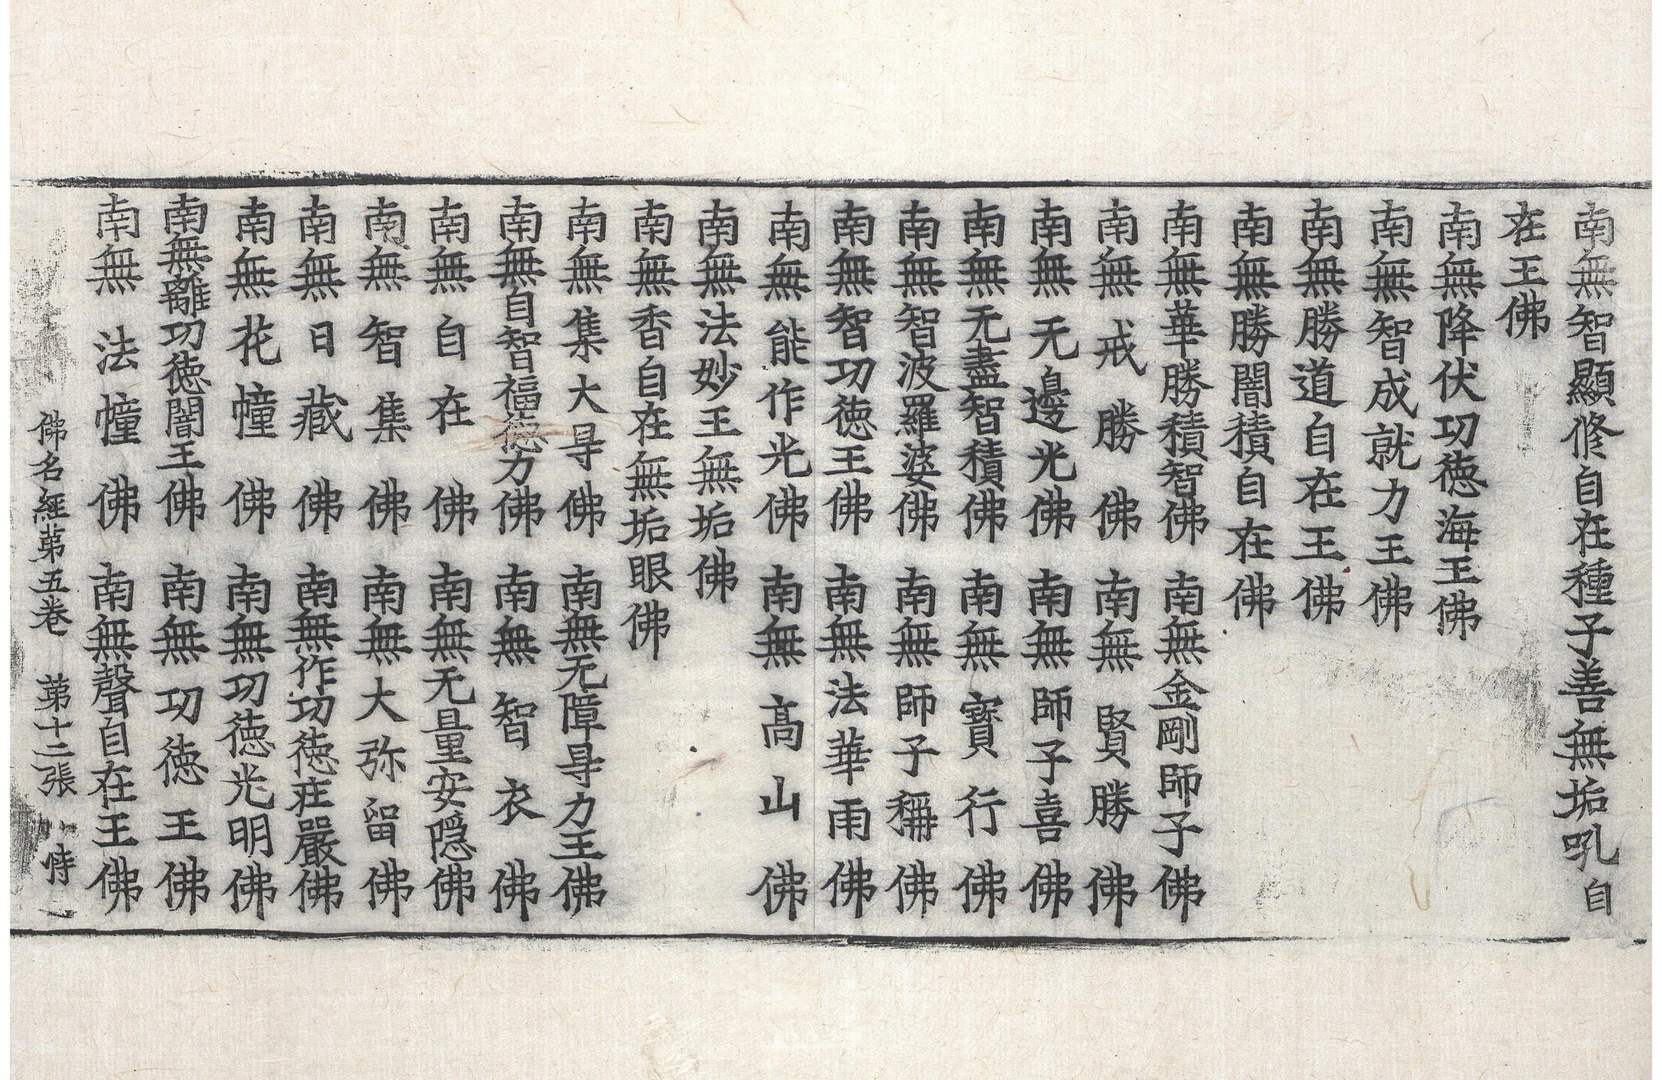 南無智顯修自在種子善無垢吼自
在王佛
南無降伏功德海王佛
南無智成就力王佛
南無勝道自在王佛
南無勝闇積自在佛
南無華勝積智佛 南無金剛師子佛
南無戒勝佛 南無賢勝佛
南無无邊光佛 南無師子喜佛
南無无盡智積佛 南無寶行佛
南無智波羅婆佛 南無師子稱佛
南無智功德王佛 南無法華雨佛
南無能作光佛 南無高山佛
南無法妙王無垢佛
南無香自在無垢眼佛
南無集大导佛 南無无障导力王佛
南無自智福德力佛 南無智衣佛
南無自在佛 南無无量安隱佛
南無智集佛 南無大弥留佛
南無日藏佛 南無作功德莊嚴佛
南無花幢佛 南無功德光明佛
南無離功德闇王佛 南無功德王佛
南無法幢佛 南無聲自在王佛
佛名經苐五卷 苐十二張